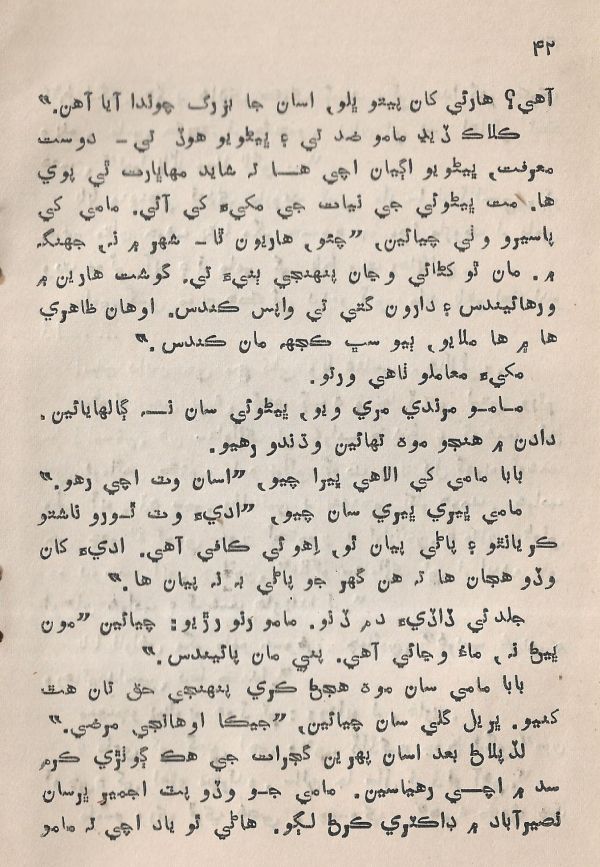 ۴۲
آهي؟ هارئي کان پيتو ڀلو، اسان جا بزرگ چوندا آيا آهن.“
ڪلاڪ ڏيڍ مامو ضد تي ۽ ڀيڻويو هوڏ تي ـ دوست
معرفت، ڀيڻويو اڳيان اچي هـا تہ شايد مهاڀارت ٿي پوي
ها. مت ڀيڻوئي جي نياٽ جي مکيءَ کي آئي. مامي کي
پاسيرو وٺي چيائين، ”چئو، هاريون ٿا ـ شهر ۾ نہ، جهنگہ
۾. مان ٿو کڻائي وڃان پنهنجي ٻنيءَ تي. گوشت هارين ۾
ورهائيندس ۽ دارون گٿي تي واپس ڪندس. اوهان ظاهري
ها ۾ ها ملايو، ٻيو سڀ ڪجهہ مان ڪندس.“
مکيءَ معاملو ٺاهي ورتو.
مـامـو مرندي مري ويو، ڀيڻوئي سان نـہ ڳالهايائين.
دادن ۾ هنجو موهہ تهائين وڌندو رهيو.
بابا مامي کي الاهي ڀيرا چيو، ”اسان وٽ اچي رهو.“
مامي ڀيري ڀيري سان چيو، ”اديءَ وٽ ٿـورو ناشتو
ڪريانٿو ۽ پاڻي پيان ٿو، اِهوئي ڪافي آهي. اديءَ کان
وڏو هجان ها تہ هن گهر جو پاڻي بہ نہ پيان ها.“
جلدئي ڏاڏيءَ دم ڏنو. مامو رنو رڙيو: چيائين ”مون
ڀيڻ نہ، ماءُ وڃائي آهي. پٽي مان پائيندس.“
بابا مامي سان موهہ هجڻ ڪري پنهنجي حق تان هٿ
کنيو. ڀريل گلي سان چيائين، ”جيڪا اوهانجي مرضي.“
لڏپلاڻ بعد اسان پهرين گجرات جي هڪ ڳوٺڙي ڪرم
سد ۾ اچـي رهياسين. مامي جـو وڏو پٽ اجمير ڀرسان
نصيرآباد ۾ ڊاڪٽري ڪرڻ لـڳو. هاڻي ٿو ياد اچي تہ مامو